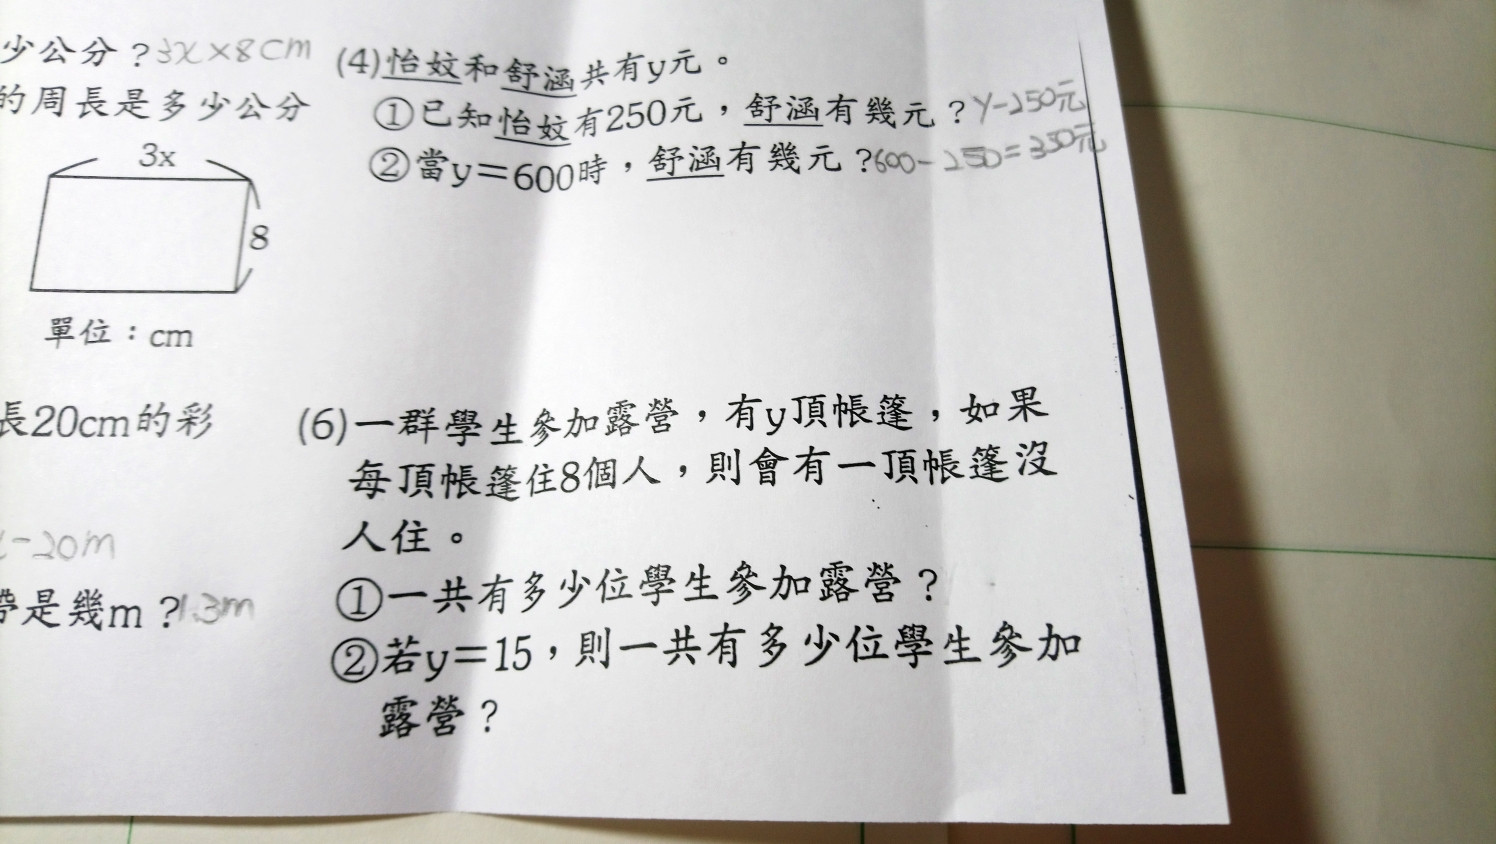 少公分?3x×8cm
的周長是多少公分
3x
8
單位:cm
長20cm的彩
-20m
帶是幾m?1.3m
(4)怡妏和舒涵共有y元。
①已知怡妏有250元,舒涵有幾元?y-250元
②當y=600時,舒涵有幾元?600-250=350元
(6)一群學生參加露營,有y頂帳篷,如果
每頂帳篷住8個人,則會有一頂帳篷沒
人住。
①一共有多少位學生參加露營?
②若y=15,則一共有多少位學生參加
露營?